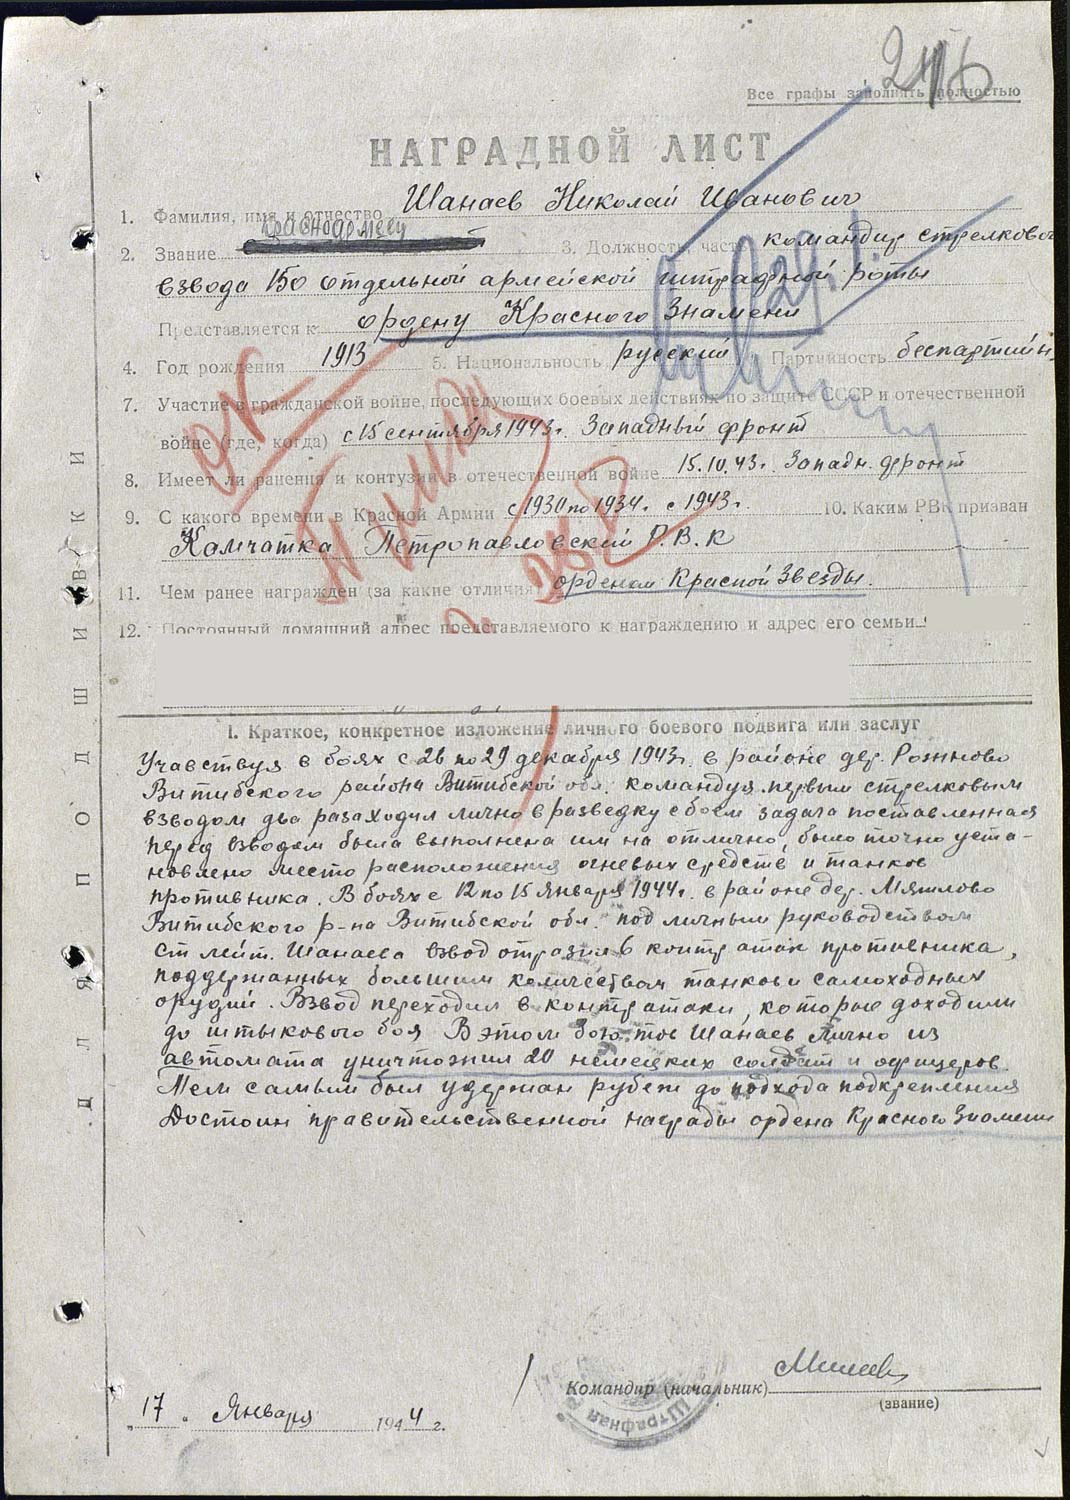 Все графы заполнять полностью
НАГРАДНОЙ ЛИСТ
1. Фамилия, имя и отчество Шанаев Николай Иванович
красноармеец
2. Звание 3. Должность, часть командир стрелковог
взвода 150 отдельной армейской штрафной роты
Представляется к ордену Красного Знамени
4. Год рождения 1913 5. Национальность русский Партийность беспартийн.
7. Участие в гражданской войне, последующих боевых действиях по защите СССР и отечественной
войне (где, когда) с 15 сентября 1943г. Западный фронт
8. Имеет ли ранения и контузии в отечественной войне 15.10.43г. Западн. фронт
9. С какого времени в Красной Армии с 1930 по 1934г. с 1943г. 10. Каким РВК призван
Камчатка Петропавловский Р.В.К
11. Чем ранее награжден (за какие отличия) орденом Красной Звезды.
12. Постоянный домашний адрес представляемого к награждению и адрес его семьи
I. Краткое, конкретное изложение личного боевого подвига или заслуг
Участвуя в боях с 26 по 29 декабря 1943г. в районе дер. Рожново
Витибского района Витибской обл. командуя первым стрелковым
взводом два раза ходил лично в разведку с боем задача поставленная
перед взводом была выполнена им на отлично, было точно уста-
новлено место расположения огневых средств и танков
противника. В боях с 12 по 15 января 1944г. в районе дер. Мяклово
Витибского р-на Витибской обл. под личным руководством
ст лейт. Шанаева взвод отразил 6 контр атак противника,
поддержанных большим количеством танков и самоходных
орудий. Взвод переходил в контр атаки, которые доходили
до штыкового боя В этом бою тов Шанаев лично из
автомата уничтожил 20 немецких солдат и офицеров.
Тем самым был удержан рубеж до подхода подкрепления
Достоин правительственной награды ордена Красного Знамени
Командир (начальник)
(звание)
„17„ Января 1944 г.
Штрафная
ДЛЯ ПОДШИВКИ